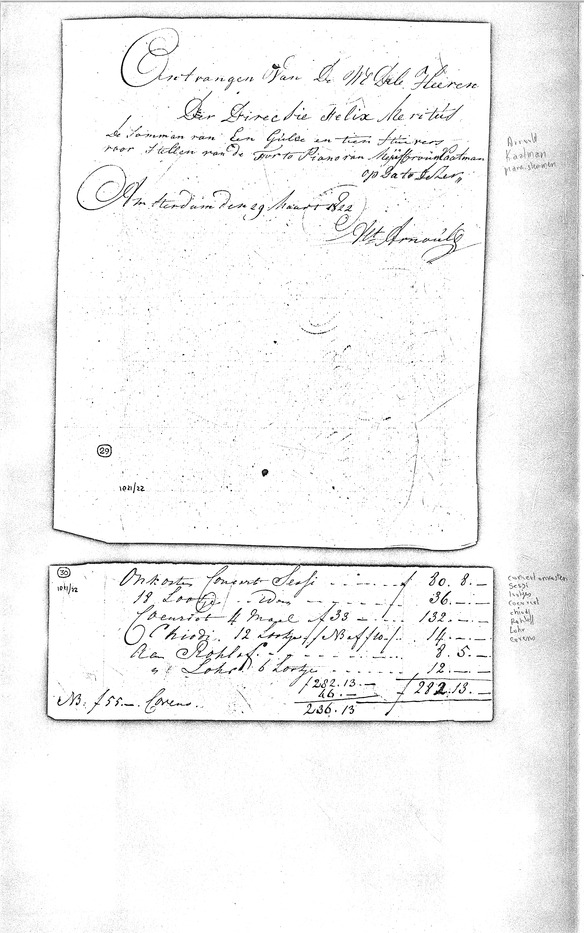 Ontvangen Van De WEdele Heeren
Der Directie Felix Meritus
De Somman van Een Gulde en tien Stuivers
voor Stellen van de Forto Piano van Mejuffrouw Kaatman
op Dato deser
Amsterdam den 29 Maart 1822
Wt Arnoult
Arnoult
Kaatman
piano stemmen
29
1021/22
30
1021/22
Onkosten Concert Sessi ƒ 80. 8. —
18 Lootjes idem 36. —
Coenriot 4 Maal ƒ 33 132. —
Chiodi. 12 Lootjes / NB ƒ 10 / 14. —
Aan Rohloff 8. 5. —
" Lohr 6 Lootjes 12. —
ƒ 282.13. — ƒ 282.13. —
46. —
236.13
NB. ƒ 55. — Covens.
concert onkosten
Sessi
lootjes
coenriot
chiodi
Rohloff
Lohr